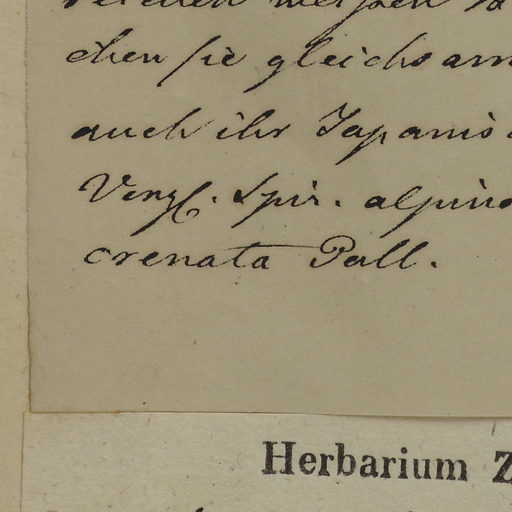 chen sie gleichsam
auch ihr Japanis
Vergl. Spir. alpina
crenata Pall.
Herbarium Z